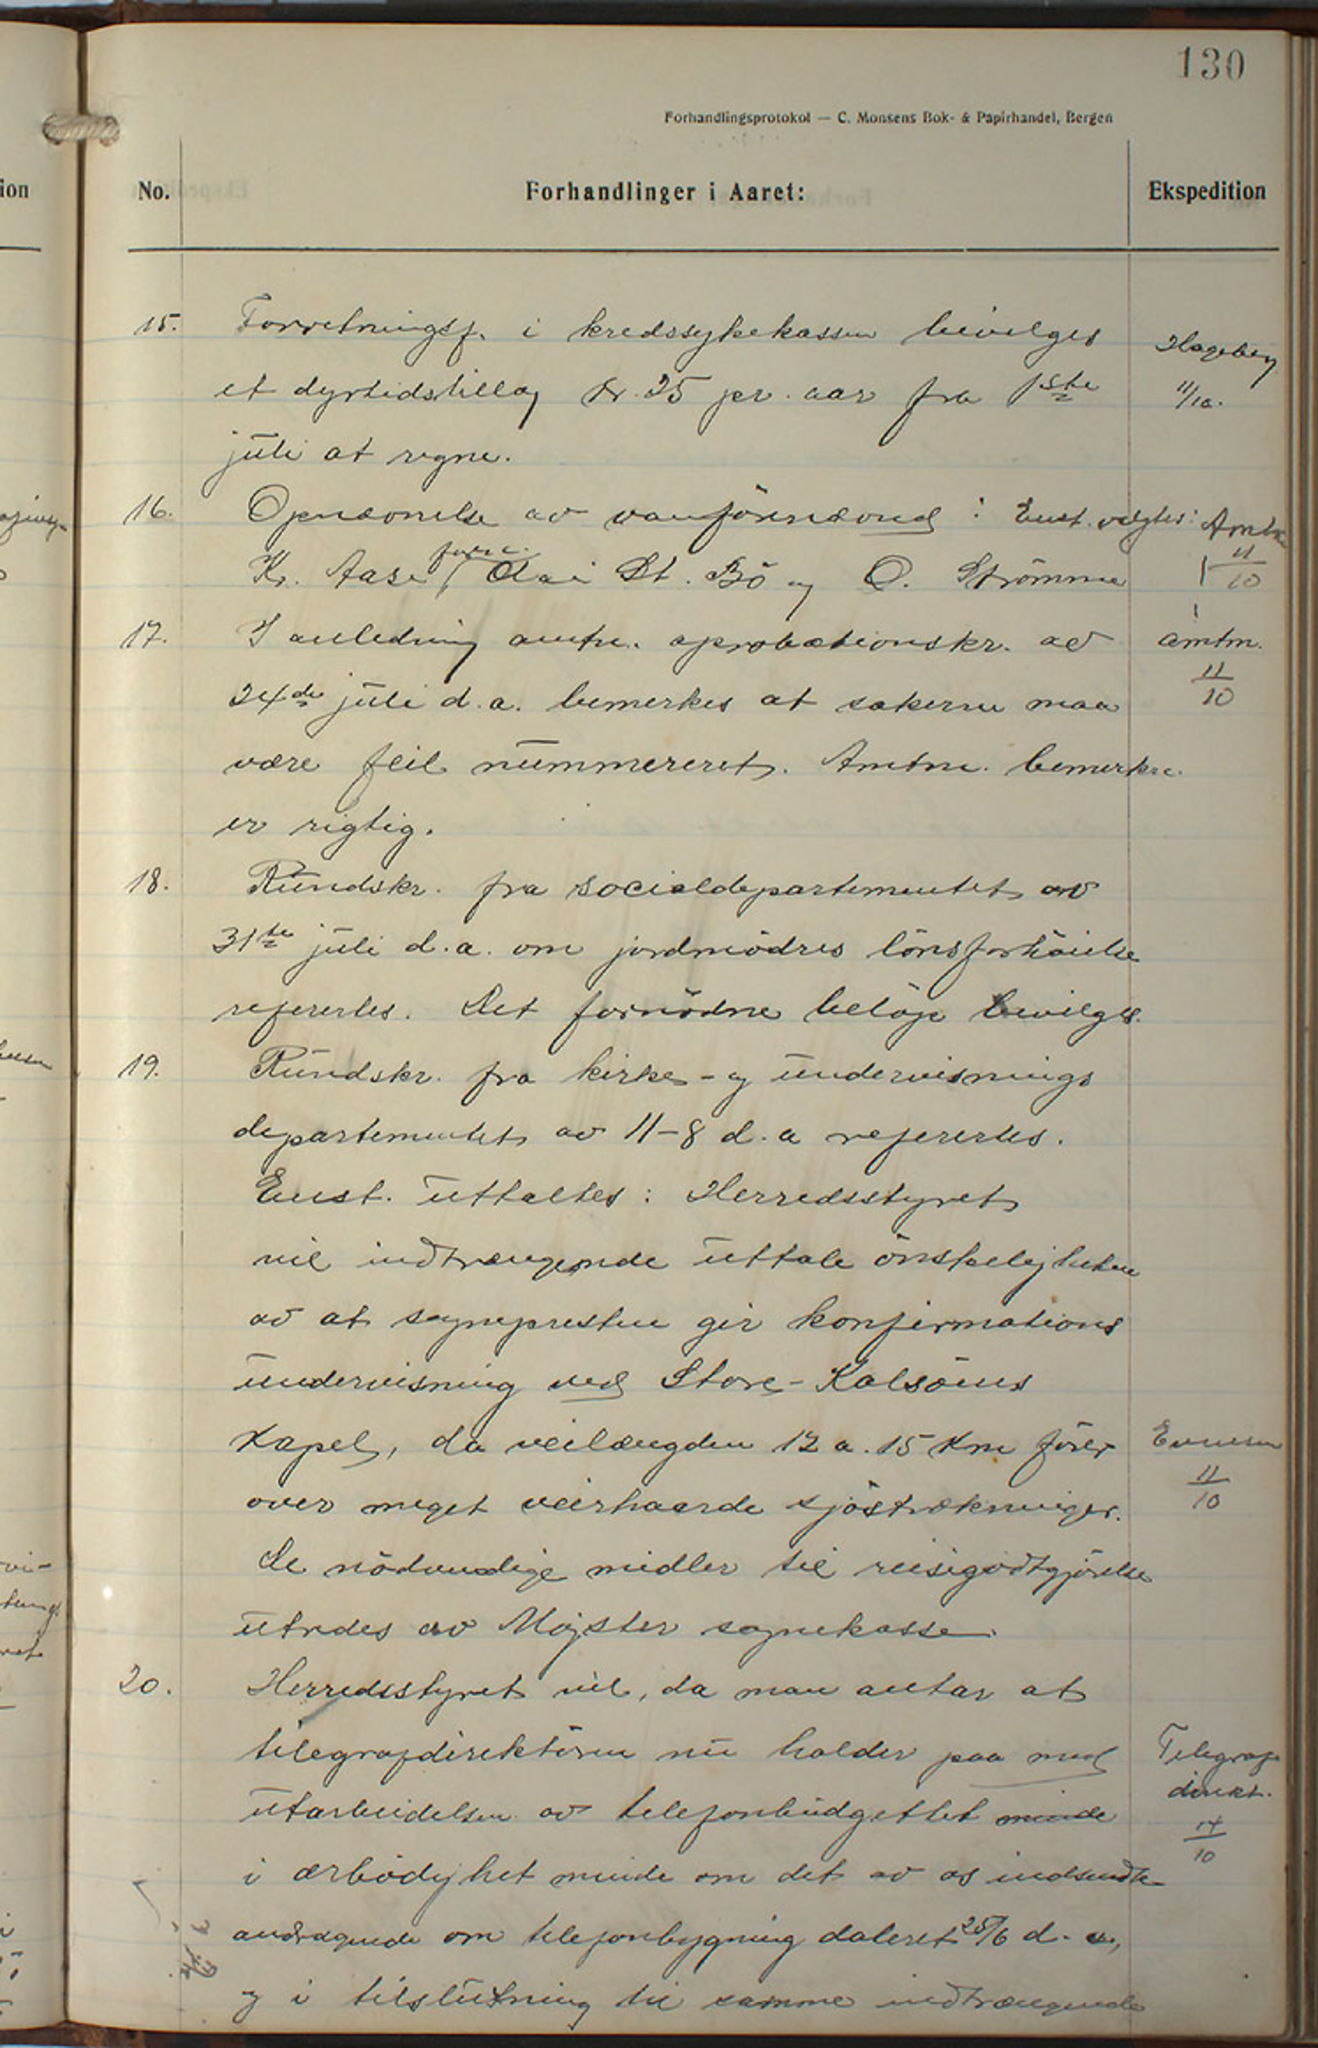 130
Forhandlingsprotokol — C. Monsens Bok- & Papirhandel, Bergen
No. Forhandlinger i Aaret: Ekspedition
15. Forretningsf. i kredssykekassen bevilges
et dyrtidstillæg kr. 25 pr. aar fra 1ste
juli at regne.
Hageberg
11/10.
16. Opnævnelse av vanførenævnd: Enst. valgtes:
Kr. Aase form. Olai St. Bö og O. Strömme
Amtm
11/10
17. I anledning amtm. aprobationskr. av
24de juli d.a. bemerkes at sakerne maa
være feil nummereret. Amtm. bemerkn.
er rigtig.
amtm.
11/10
18. Rundskr. fra socialdepartementet av
31te juli d.a. om jordmødres lönsforhöielse
refereertes. Det fornödne belöp bevilges.
19. Rundskr. fra kirke- og undervisnings
departementet av 11-8 d.a refereertes.
Enst. uttaltes: Herredsstyret
vil indtrængende uttale önskeligheten
av at sognepresten gir konfirmations
undervisning ved Store-Kalsöens
kapel, da veilængden 12 a. 15 km förer
over meget veirhaarde sjöstrækninger.
De nödvendige midler til reisegodtgjörelse
utredes av Møgster sognekasse.
Evensen
11/10
20. Herredsstyret vil, da man antar at
telegrafdirektören nu holder paa med
utarbeidelsen av telefonbudgettet minde
i ærbödighet minde om det av os indsendte
andragende om telefonbygning dateret 25/6 d. a.,
og i tilslutning til samme indtrængende
Telegraf
direkt.
14/10